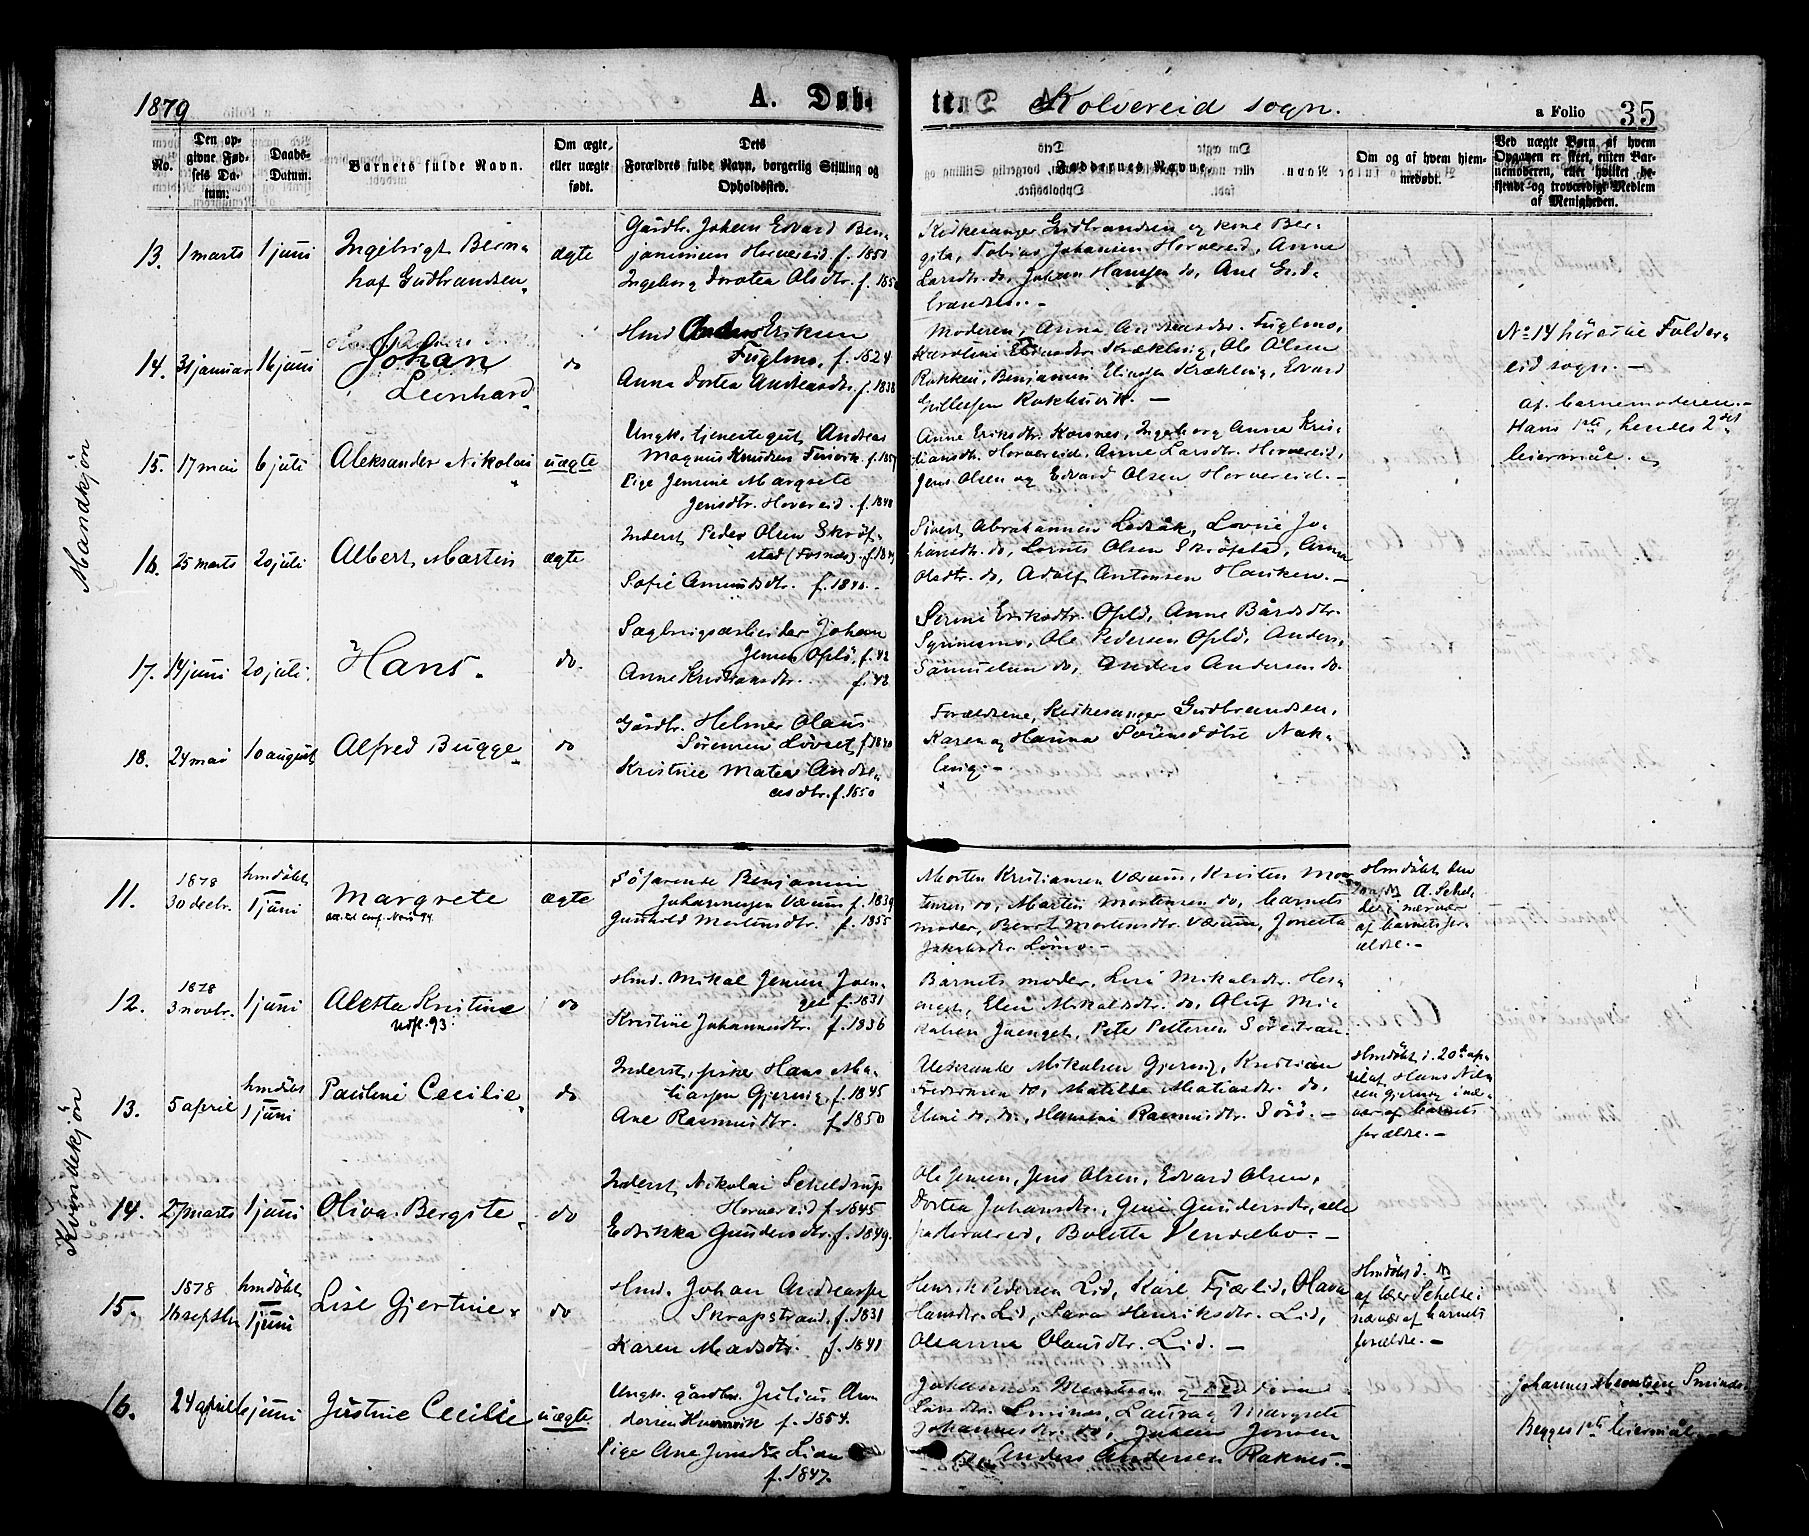 1879
A. Døb-
te.
Kolvereid sogn.
a Folio
35
No.
Den op-
givne Fød-
sels Da-
tum.
Daabs-
Datum.
Barnets fulde Navn.
Om ægte,
eller uægte
født.
Dets
Forældres fulde Navn, borgerlig Stilling og
Opholdssted.
Faddernes Navne.
Om og af hvem hjem-
medøbt.
Ved uægte Børn, af hvem
Opgaven er skeet, enten Bar-
nemoderen, eller hvilket be-
kjendt og troværdigt Medlem
af Menigheden.
Mandkjøn
13. 1 marts 1 juni
Ingebrigt Bern-
hof Gudbrandsen
ægte
Gårdbr. Johan Edvard Ben-
jaminsen Horvereid f. 1850
Ingeborg Dorotea Olsdtr. f. 185
Kirkesanger Gudbrandsen og kone Ber-
gita, Tobias Johansen Horvereid, Anne
Larsdtr. do, Johan Hansen do, Ane Gud-
brandsen. -
14. 31 januar 16 juni
Johan
Leonhard
do
Hmd Anders Eriksen
Fuglmo, f. 1824
Anna Dortea Andreasdtr. f. 1838
Moderen, Anna Andreasdtr. Fuglmo,
Karoline Krækling, Ole Olsen
Rokken, Benjamin Elingsen Krækling, Edvard
No 14 hörer til Folder-
eid sogn. -
15. 17 mai 6 juli
Aleksander Nikolai
uægte
Ungk. tjenestegut Andreas
Magnus Knudsen f. 1857
Pige Jensine Margrete
Jensdtr. Horvereid f. 1848
Anne Eriksdtr. Korsnes, Ingeborg Anna Kris-
tiansdtr. Horvereid, Anne Larsdtr. Horvereid,
Jens Olsen og Edvard Olsen Horvereid. -
af barnemoderen. -
Hans 1ste, hendes 2det
leiermål.
16. 25 marts 20 juli
Albert Martin
ægte
Inderst Peder Olsen Skröf-
stad (Fosnes) f. 18
Sofie Amundsdtr. f. 1840 -
Sivert Abrahamsen Lovise Jo-
hansdtr. do, Lornts Olsen Anna
Olsdtr. do, Adolf Antonsen Hansken. -
17. 14 juni 20 juli
Hans.
do.
Sagbrugsarbeider Johan
Jensen Oplö, f. 42
Anne Kristiansdtr. f. 42
Serine Eriksdtr. Oplö, Anne Bårdsdtr.
Ole Pedersen Oplö, Anders
Samuelsen do, Anders Andersen do.
18. 24 mai 10 august
Alfred Bugge
do
Gårdbr. Helmer Olaus
Sörensen Lövset, f. 1840
Kristine Matea Andre-
asdtr. f. 1850
Forældrene, Kirkesanger Gudbrandsen,
Karen og Hanna Sörensdötre Nak-
ling. -
Kvindekjön
11. 1878
30 decbr.
hmdöbt
1 juni
Margrete
ægte
Söfarende Benjamin
Johannesen Værum f. 1839
Gunhild Mortensdtr. f. 1855
Morten Kristiansen Værum, Kristen Mor-
tensen do, Martin Mortensen do, barnets
moder, Berit Mortensdtr. Værum, Jonetta
Jakobsdtr. Lömo. -
Hmdöbt den
A. Schel-
der i nærvær
af barnets for-
ældre. -
12. 1878
3 novbr.
1 juni
Aletta Kristine
Udfl. 93
do
Hmd. Mikal Jensen Joen-
get f. 1831
Kristine Johannesdtr. f. 1836
Barnets moder, Lise Mikalsdr. Hes-
enget, Elen Mikalsdtr. do, Oluf Mi-
kalsen Joenget, Peter Pettersen
13. 5 april
hmdöbt
1 juni
Pauline Cecilie
do
Inderst, fisker Hans Ma-
tiassen Gjerning, f. 1845
Ane Rasmusdtr. f. 1850
Aleksander Mikalsen Gjerning, Kristian
Fredriksen do, Matilde Matiasdtr. do,
Eline do, do, Hansine Rasmusdtr. Sörö. -
Hmdöbt d. 20de ap-
ril af Hans Nils-
sen Gjerning i nær-
vær af barnets
forældre. -
14. 27 marts 1 juni
Oliva Bergite
do
Inderst, Nikolai Scheldrup
Horvereid f. 1845
Edrikka Gundersdtr. f. 1849.
Ole Jensen, Jens Olsen, Edvard Olsen,
Dortea Johansdtr., Gine Gundersdtr, alle
fra Horvereid, Bolette Vendsebo. -
15. 1878
16 septbr
hmdöbt
1 juni
Lise Gjertine
do
Hmd. Johan Andreassen
Skrapstrand. f. 1831
Karen Madsdtr. f. 1841
Henrik Pedersen Lid, Karl Fjærlid, Olava
Hansdtr. Lid, Sara Henriksdtr. Lid,
Oleanna Olausdtr. Lid. -
Hmdöbt d.
af lærer Schelde i
nærvær af barnets
forældre. -
16. 24 april 6 juni
Justine Cecilie
uægte
Ungk. gårdbr. Julius An-
dersen Kvernvik f. 1854.
Pige Ane Lian
f. 1847.
Johannes
Larsdtr. Smines, Laura og Margrete
Johannesdtr. do, Johan Jensen
do, Anders Andersen Raknes. -
Johannes
Begges 1ste leiermål